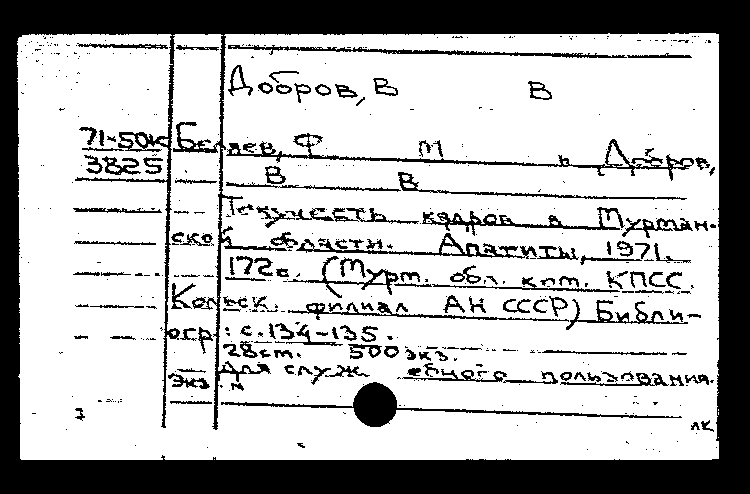 Добров, В В
71-50к Беляев, Ф М и Добров,
3825 В В
Текучесть кадров в Мурман-
ской области. Апатиты, 1971.
172с. (Мурт. обл. кпт. КПСС.
Кольск. филиал АН СССР) Библи-
огр: с.134-135.
28ст. 500экз.
Для служ ебного пользования.
Экз. N
лк